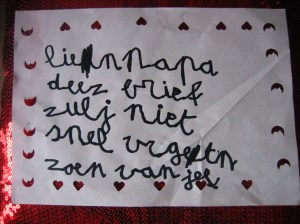 liennapa
deez brief
zulj niet
snel vrgeetn
zoen van jef